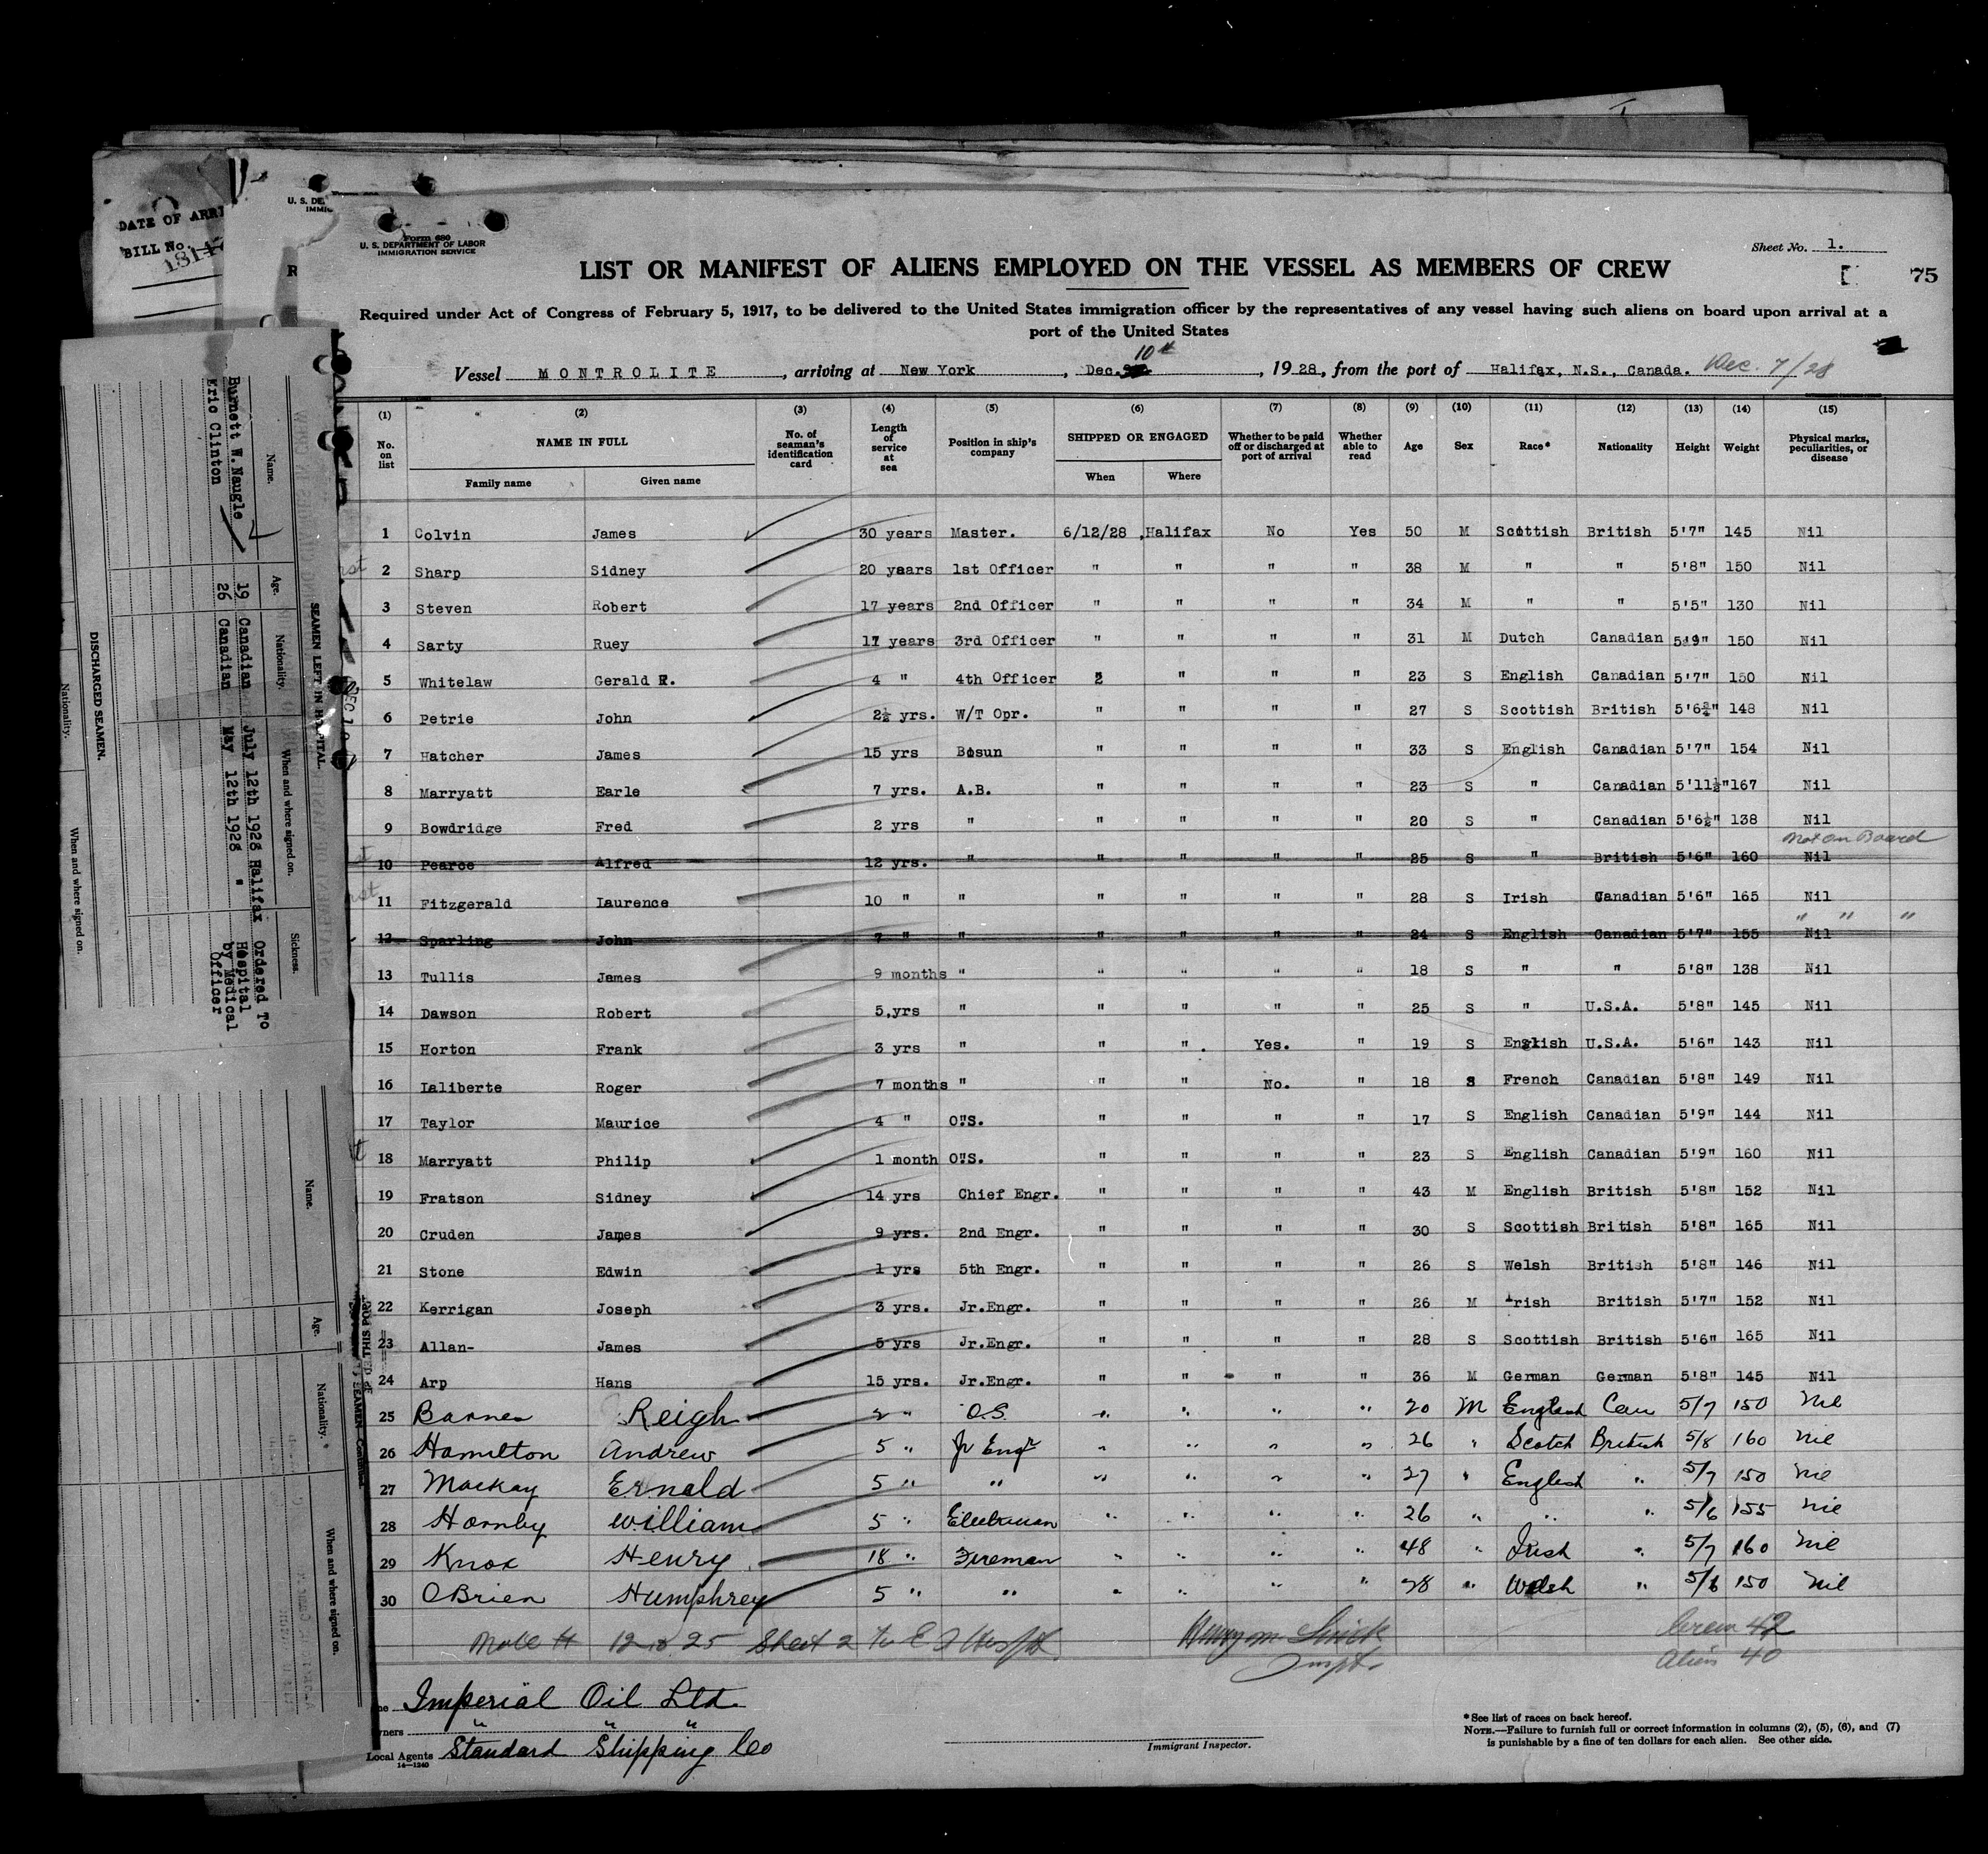 DATE OF ARR
BILL No.
1814
U. S. DE
IMMIG
R
Form 680
U. S. DEPARTMENT OF LABOR
IMMIGRATION SERVICE
Sheet No. 1.
LIST OR MANIFEST OF ALIENS EMPLOYED ON THE VESSEL AS MEMBERS OF CREW
75
Required under Act of Congress of February 5, 1917, to be delivered to the United States immigration officer by the representatives of any vessel having such aliens on board upon arrival at a
port of the United States
Vessel MONTROLITE, arriving at New York, Dec. 10th, 1928, from the port of Halifax, N.S., Canada. Dec. 7/28
(1) (2) (3) (4) (5) (6) (7) (8) (9) (10) (11) (12) (13) (14) (15)
No. on list NAME IN FULL Family name Given name No. of seaman's identification card Length of service at sea Position in ship's company SHIPPED OR ENGAGED When Where Whether to be paid off or discharged at port of arrival Whether able to read Age Sex Race* Nationality Height Weight Physical marks, peculiarities, or disease
1 Colvin James 30 years Master. 6/12/28 Halifax No Yes 50 M Scottish British 5'7" 145 Nil
2 Sharp Sidney 20 yaars 1st Officer " " " " 38 M " " 5'8" 150 Nil
3 Steven Robert 17 years 2nd Officer " " " " 34 M " " 5'5" 130 Nil
4 Sarty Ruey 17 years 3rd Officer " " " " 31 M Dutch Canadian 5'9" 150 Nil
5 Whitelaw Gerald F. 4 " 4th Officer " " " " 23 S English Canadian 5'7" 150 Nil
6 Petrie John 2½ yrs. W/T Opr. " " " " 27 S Scottish British 5'6¾" 148 Nil
7 Hatcher James 15 yrs Bosun " " " " 33 S English Canadian 5'7" 154 Nil
8 Marryatt Earle 7 yrs. A.B. " " " " 23 S " Canadian 5'11½" 167 Nil
9 Bowdridge Fred 2 yrs " " " " " 20 S " Canadian 5'6½" 138 Nil
Not On Board
10 Pearce Alfred 12 yrs. " " " " " 25 S " British 5'6" 160 Nil
11 Fitzgerald Laurence 10 " " " " " " 28 S Irish Canadian 5'6" 165 Nil
" " "
12 Sparling John 7 " " " " " " 24 S English Canadian 5'7" 155 Nil
13 Tullis James 9 months " " " " " 18 S " " 5'8" 138 Nil
14 Dawson Robert 5 yrs " " " " " 25 S " U.S.A. 5'8" 145 Nil
15 Horton Frank 3 yrs " " " Yes. " 19 S English U.S.A. 5'6" 143 Nil
16 Laliberte Roger 7 months " " " No. " 18 S French Canadian 5'8" 149 Nil
17 Taylor Maurice 4 " O.S. " " " " 17 S English Canadian 5'9" 144 Nil
18 Marryatt Philip 1 month O.S. " " " " 23 S English Canadian 5'9" 160 Nil
19 Fratson Sidney 14 yrs Chief Engr. " " " " 43 M English British 5'8" 152 Nil
20 Cruden James 9 yrs. 2nd Engr. " " " " 30 S Scottish British 5'8" 165 Nil
21 Stone Edwin 1 yrs 5th Engr. " " " " 26 S Welsh British 5'8" 146 Nil
22 Kerrigan Joseph 3 yrs. Jr.Engr. " " " " 26 M Irish British 5'7" 152 Nil
23 Allan- James 5 yrs Jr.Engr. " " " " 28 S Scottish British 5'6" 165 Nil
24 Arp Hans 15 yrs. Jr.Engr. " " " " 36 M German German 5'8" 145 Nil
25 Barnes Reigh 2 " O.S. " " " " 20 M English Can 5/7 150 Nil
26 Hamilton Andrew 5 " Jr Engr " " " " 26 " Scotch British 5/8 160 Nil
27 Mackay Ernald 5 " " " " " " 27 " English " 5/7 150 Nil
28 Hornby William 5 " Electrician " " " " 26 " " " 5/6 155 Nil
29 Knox Henry 18 " Fireman " " " " 48 " Irish " 5/7 160 Nil
30 OBrien Humphrey 5 " " " " " " 28 " Welsh " 5/6 150 Nil
Note # 12 to 25 Sheet 2
Inspt.
Crew 42
Alien 40
Imperial Oil Ltd.
Owners " " "
Local Agents Standard Shipping Co
14—1240
Immigrant Inspector.
*See list of races on back hereof.
NOTE.—Failure to furnish full or correct information in columns (2), (5), (6), and (7)
is punishable by a fine of ten dollars for each alien. See other side.
SEAMEN LEFT IN HOSPITAL.
Name. Age. Nationality. When and where signed on. Sickness.
Burnett W. Naugle 19 Canadian July 12th 1928 Halifax Ordered To
Eric Clinton 26 Canadian May 12th 1928 " Hospital
by Medical
Officer
DISCHARGED SEAMEN.
Nationality. When and where signed on.
Name. Age. Nationality.* When and where signed on.